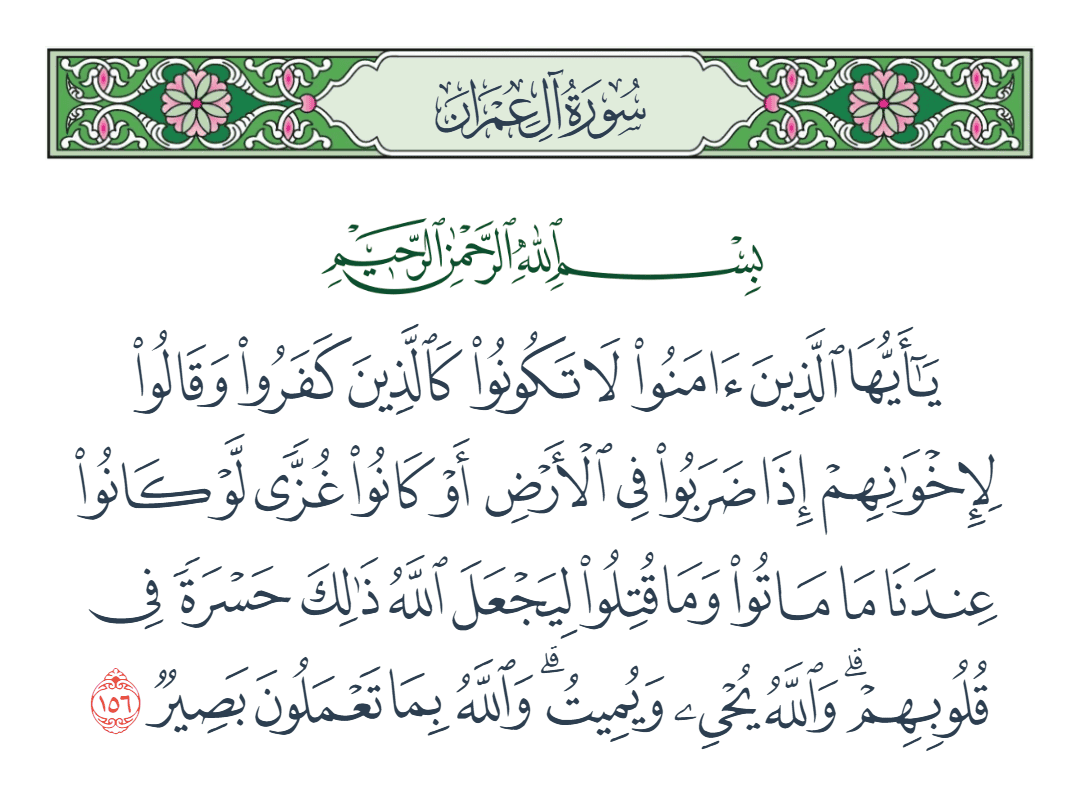 سُورَةُ آلِ عِمۡرَان
بِسۡمِ ٱللَّهِ ٱلرَّحۡمَٰنِ ٱلرَّحِيمِ
يَٰٓأَيُّهَا ٱلَّذِينَ ءَامَنُواْ لَا تَكُونُواْ كَٱلَّذِينَ كَفَرُواْ وَقَالُواْ
لِإِخۡوَٰنِهِمۡ إِذَا ضَرَبُواْ فِي ٱلۡأَرۡضِ أَوۡ كَانُواْ غُزّٗى لَّوۡ كَانُواْ
عِندَنَا مَا مَاتُواْ وَمَا قُتِلُواْ لِيَجۡعَلَ ٱللَّهُ ذَٰلِكَ حَسۡرَةٗ فِي
قُلُوبِهِمۡۗ وَٱللَّهُ يُحۡيِۦ وَيُمِيتُۗ وَٱللَّهُ بِمَا تَعۡمَلُونَ بَصِيرٞ ١٥٦